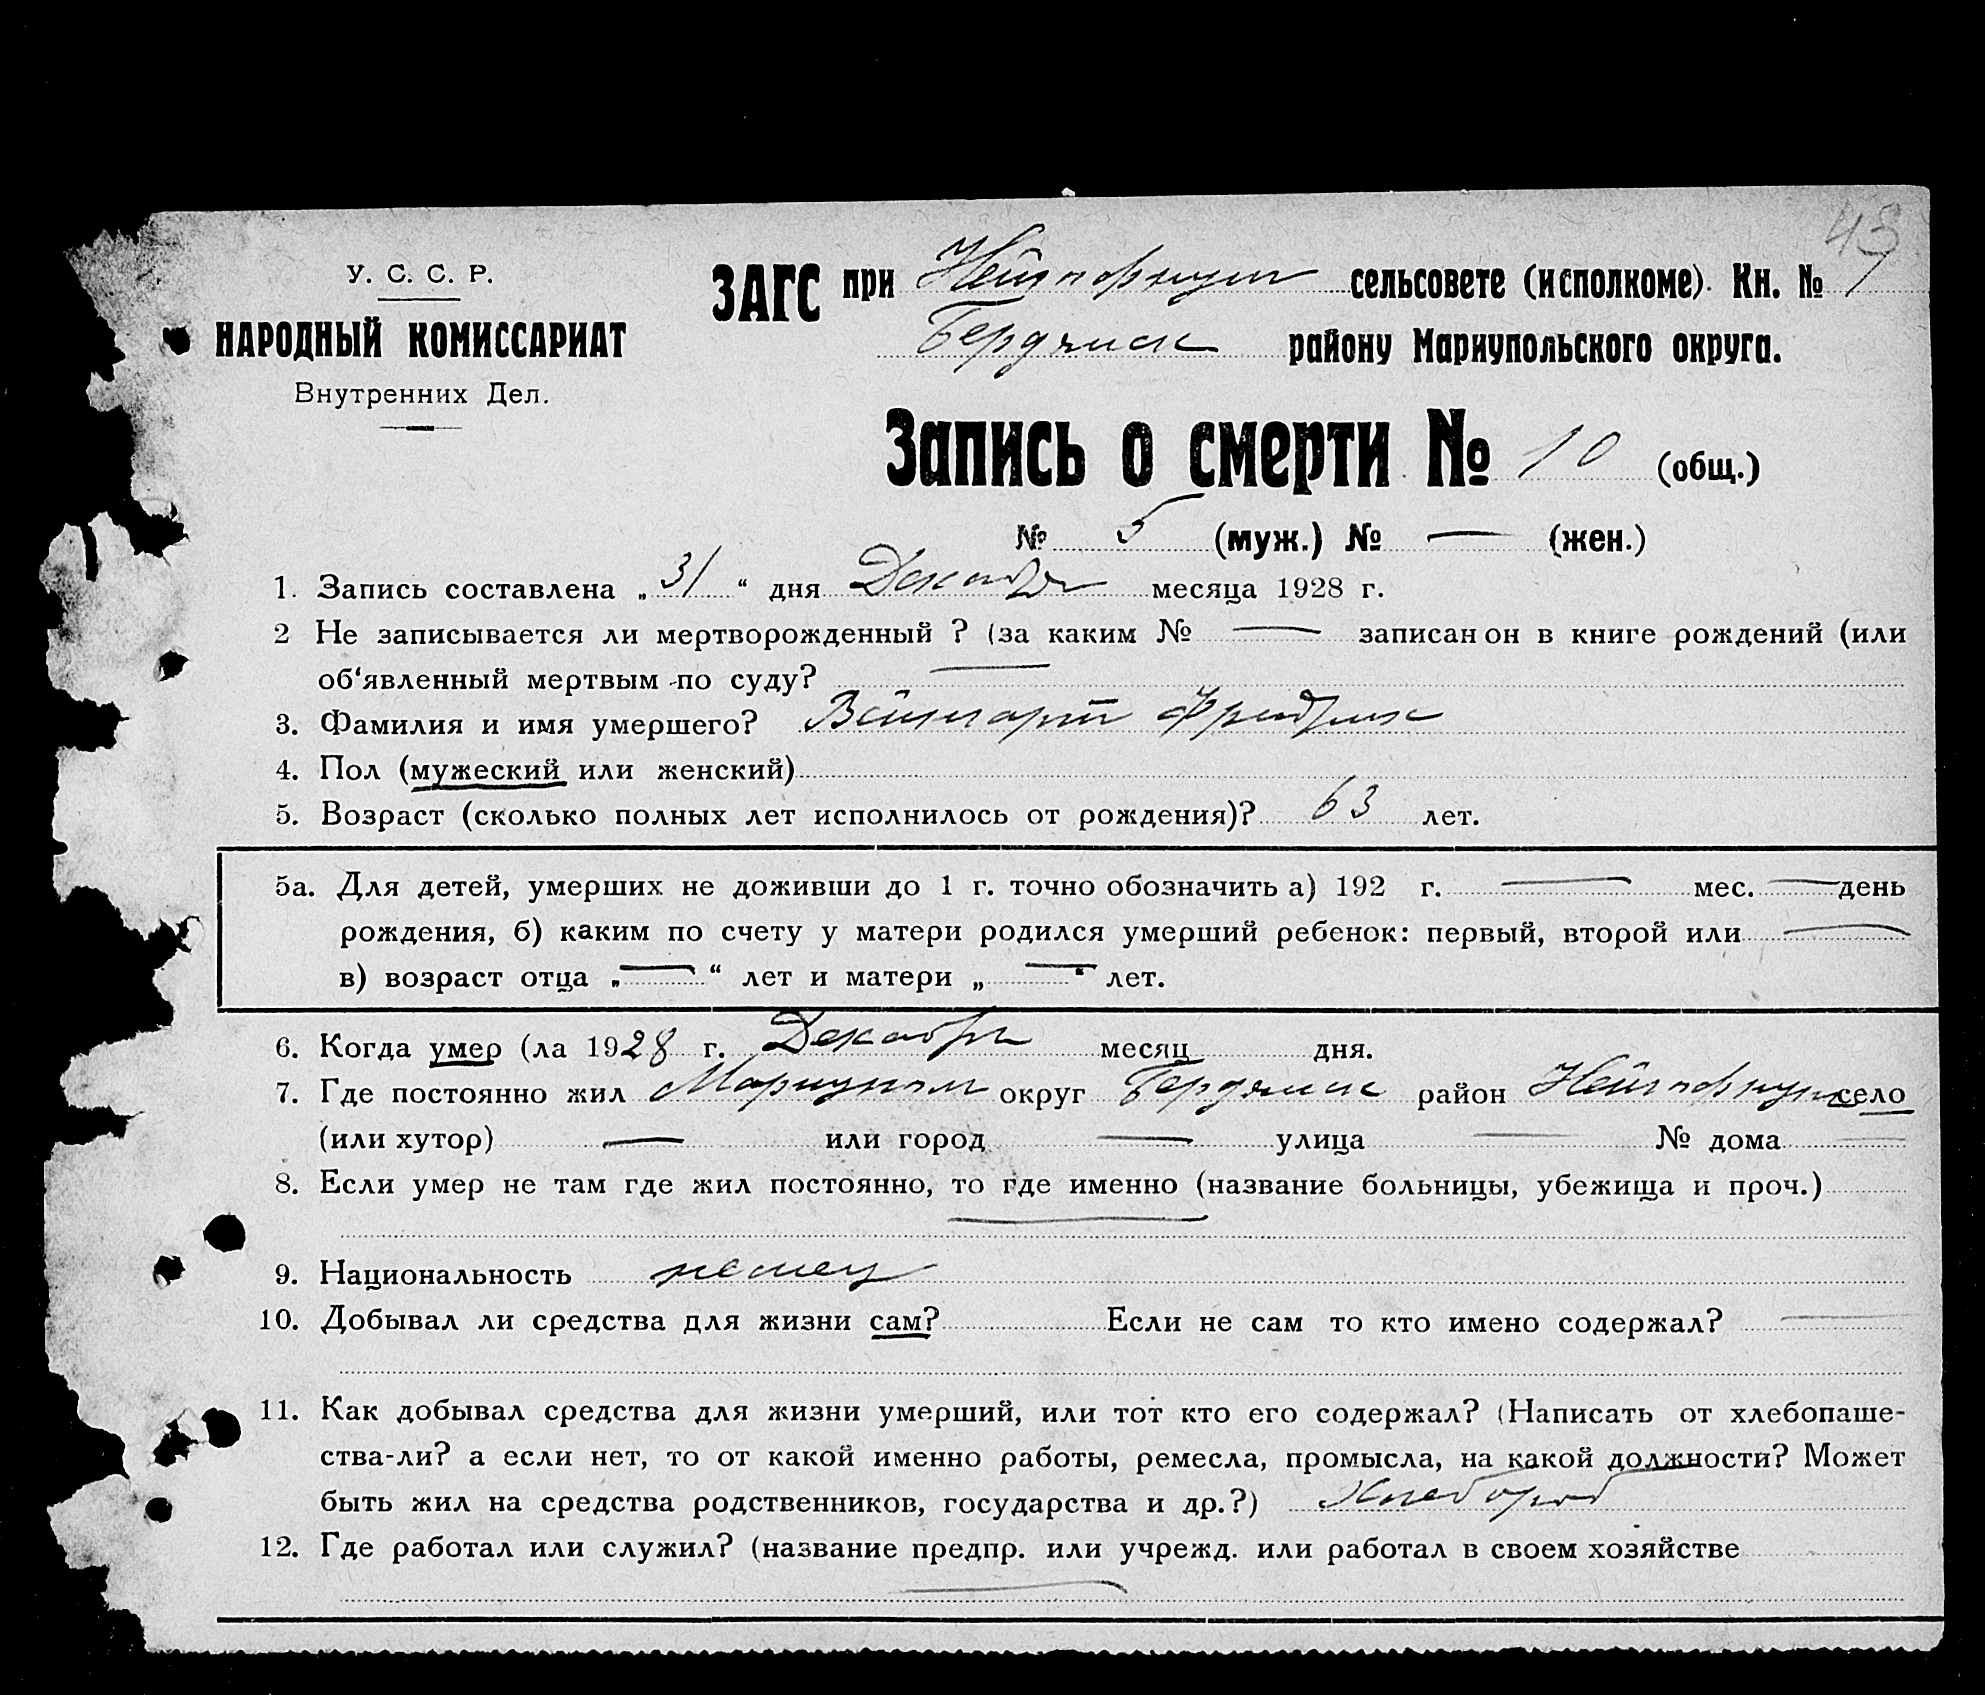 43
У. С. С. Р.
НАРОДНЫЙ КОМИССАРИАТ
Внутренних Дел.
ЗАГС при Нейгофнунг сельсовете (исполкоме) Кн. № 1
Бердянск району Мариупольского округа.
Запись о смерти № 10 (общ.)
№ 5 (муж.) № — (жен.)
1. Запись составлена „ 31 “ дня Декабря месяца 1928 г.
2 Не записывается ли мертворожденный ? (за каким № — записан он в книге рождений (или
об‘явленный мертвым по суду? —
3. Фамилия и имя умершего? Вейнгарт Фридрих
4. Пол (мужеский или женский)
5. Возраст (сколько полных лет исполнилось от рождения)? 63 лет.
5а. Для детей, умерших не доживши до 1 г. точно обозначить а) 192 г. — мес. — день
рождения, б) каким по счету у матери родился умерший ребенок: первый, второй или —
в) возраст отца „ — “ лет и матери „ — “ лет.
6. Когда умер (ла 1928 г. Декабря месяц дня.
7. Где постоянно жил Мариуполь округ Бердянск район Нейгофнунг село
(или хутор) — или город — улица — № дома —
8. Если умер не там где жил постоянно, то где именно (название больницы, убежища и проч.)
—
9. Национальность немец
10. Добывал ли средства для жизни сам? Если не сам то кто имено содержал? —
11. Как добывал средства для жизни умерший, или тот кто его содержал? (Написать от хлебопаше-
ства-ли? а если нет, то от какой именно работы, ремесла, промысла, на какой должности? Может
быть жил на средства родственников, государства и др.?) Хлебороб
12. Где работал или служил? (название предпр. или учрежд. или работал в своем хозяйстве
—